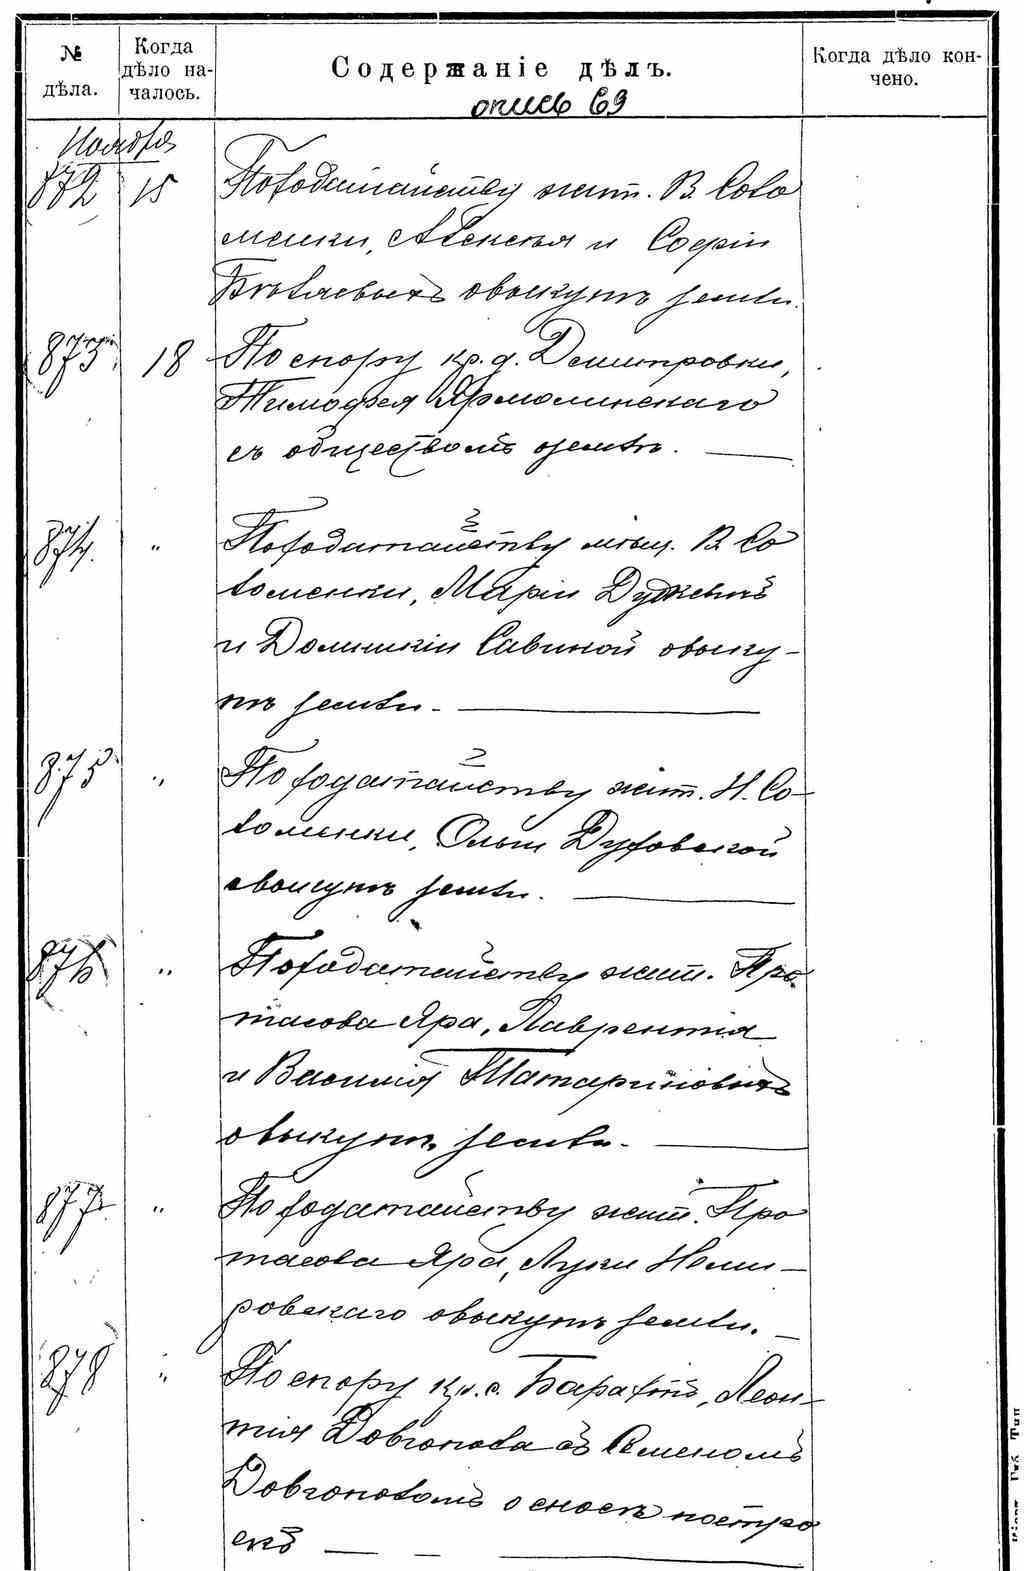 № дѣла.
Когда дѣло началось.
Содержаніе дѣлъ.
Когда дѣло кончено.
опись 69
Ноября
872 15 По ходатайству жит. В. Соло
менки, Алексѣя и Софіи
Бѣляевыхъ о выкупѣ земли.
873. 18 По спору кр. д. Дмитровки,
Тимофея Ярмолинскаго
съ обществомъ о землѣ. —
874. " По ходатайству мѣщ. В. Со
ломенки, Маріи
и Домникіи Савиной о выку-
пѣ земли. —
875 " По ходатайству жит. Н. Со-
ломенки, Ольги Духовской
о выкупѣ земли. —
876 " По ходатайству жит. Про-
тасова Яра, Лаврентія
и Василія Татариновыхъ
о выкупѣ земли. —
877. " По ходатайству жит. Про
тасова Яра, Луки Номи-
ровскаго о выкупѣ земли. —
878 " По спору кр. с. Барахтъ, Леон-
тія Довгопола съ Семеномъ
Довгополомъ о сносѣ постро
екъ — — —
Губ. Тип.